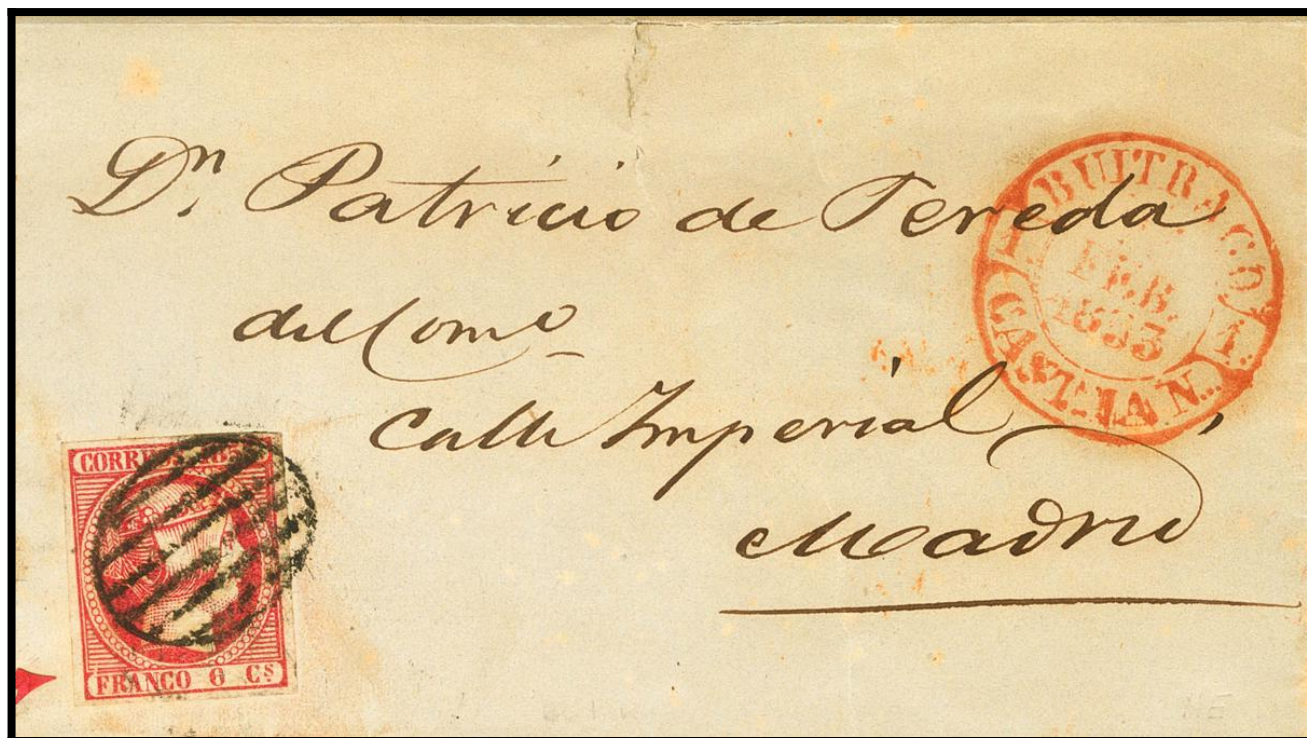 Dn. Patricio de Pereda
del Como
Calle Imperial,
Madrid
BUITRAGO
FEB.
1853
1
1
CAST.LA N.
CORREOS 1853
FRANCO 6 Cs